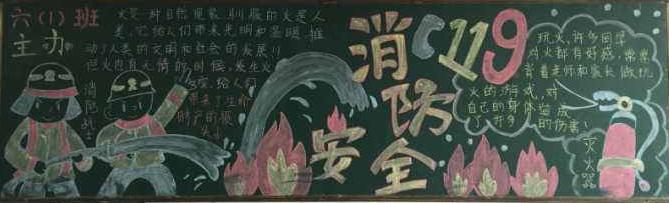 六(1)班
主办
火是一种自然现象,驯服的火是人
类,它给人们带来光明和温暖,推
动了人类的文明和社会的发展。
但火也有无情的时候,发生火
灾,给人们
带来了生命
财产的损
失。
消防战士
消防安全
119
玩火,许多同学
对火都有好感,常常
背着老师和家长做玩
火的游戏,对
自己的身体造成
了
的伤害!
灭火器